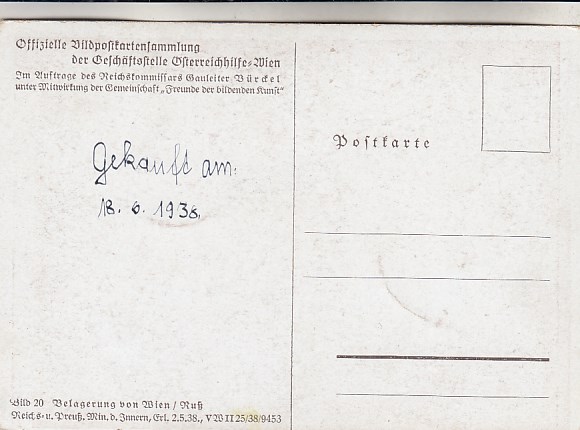 Offizielle Bildpostkartensammlung
der Geschäftsstelle Österreichhilfe-Wien
Im Auftrage des Reichskommissars Gauleiter Bürckel
unter Mitwirkung der Gemeinschaft „Freunde der bildenden Kunst“
Gekauft am:
18. 6. 1938.
Postkarte
Bild 20 Belagerung von Wien / Ruß
Reichs- u. Preuß. Min. d. Innern, Erl. 2.5.38., VW II 25/38/9453